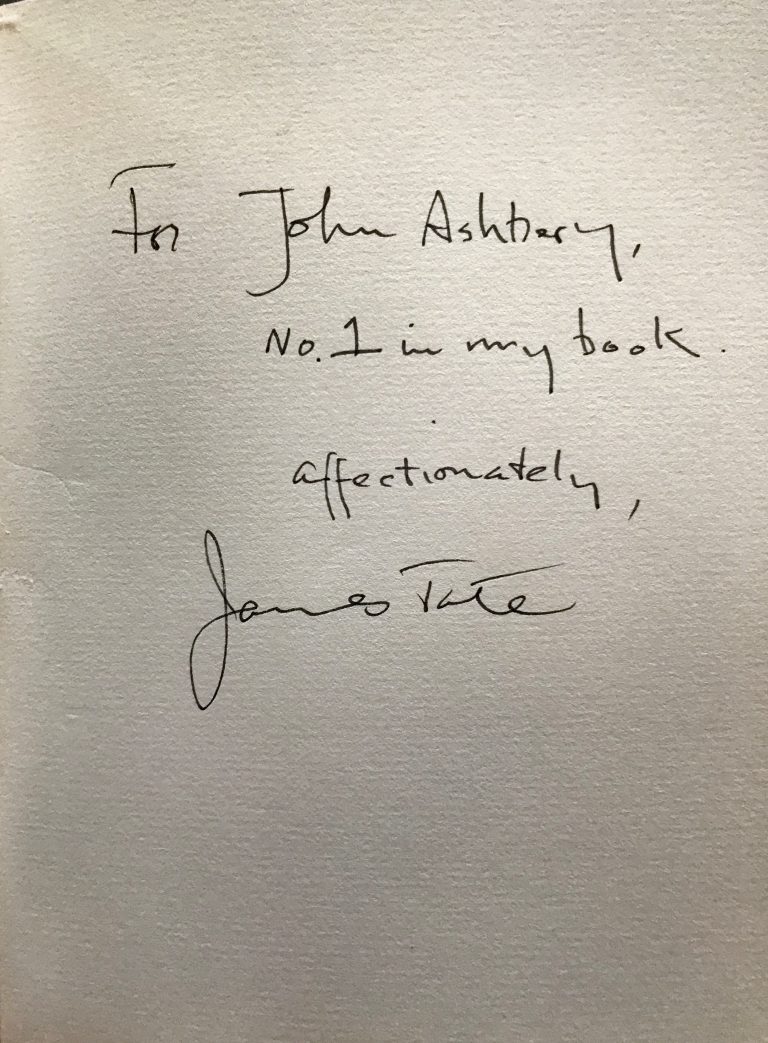 For John Ashbery,
No. 1 in my book.
affectionately,
James Tate